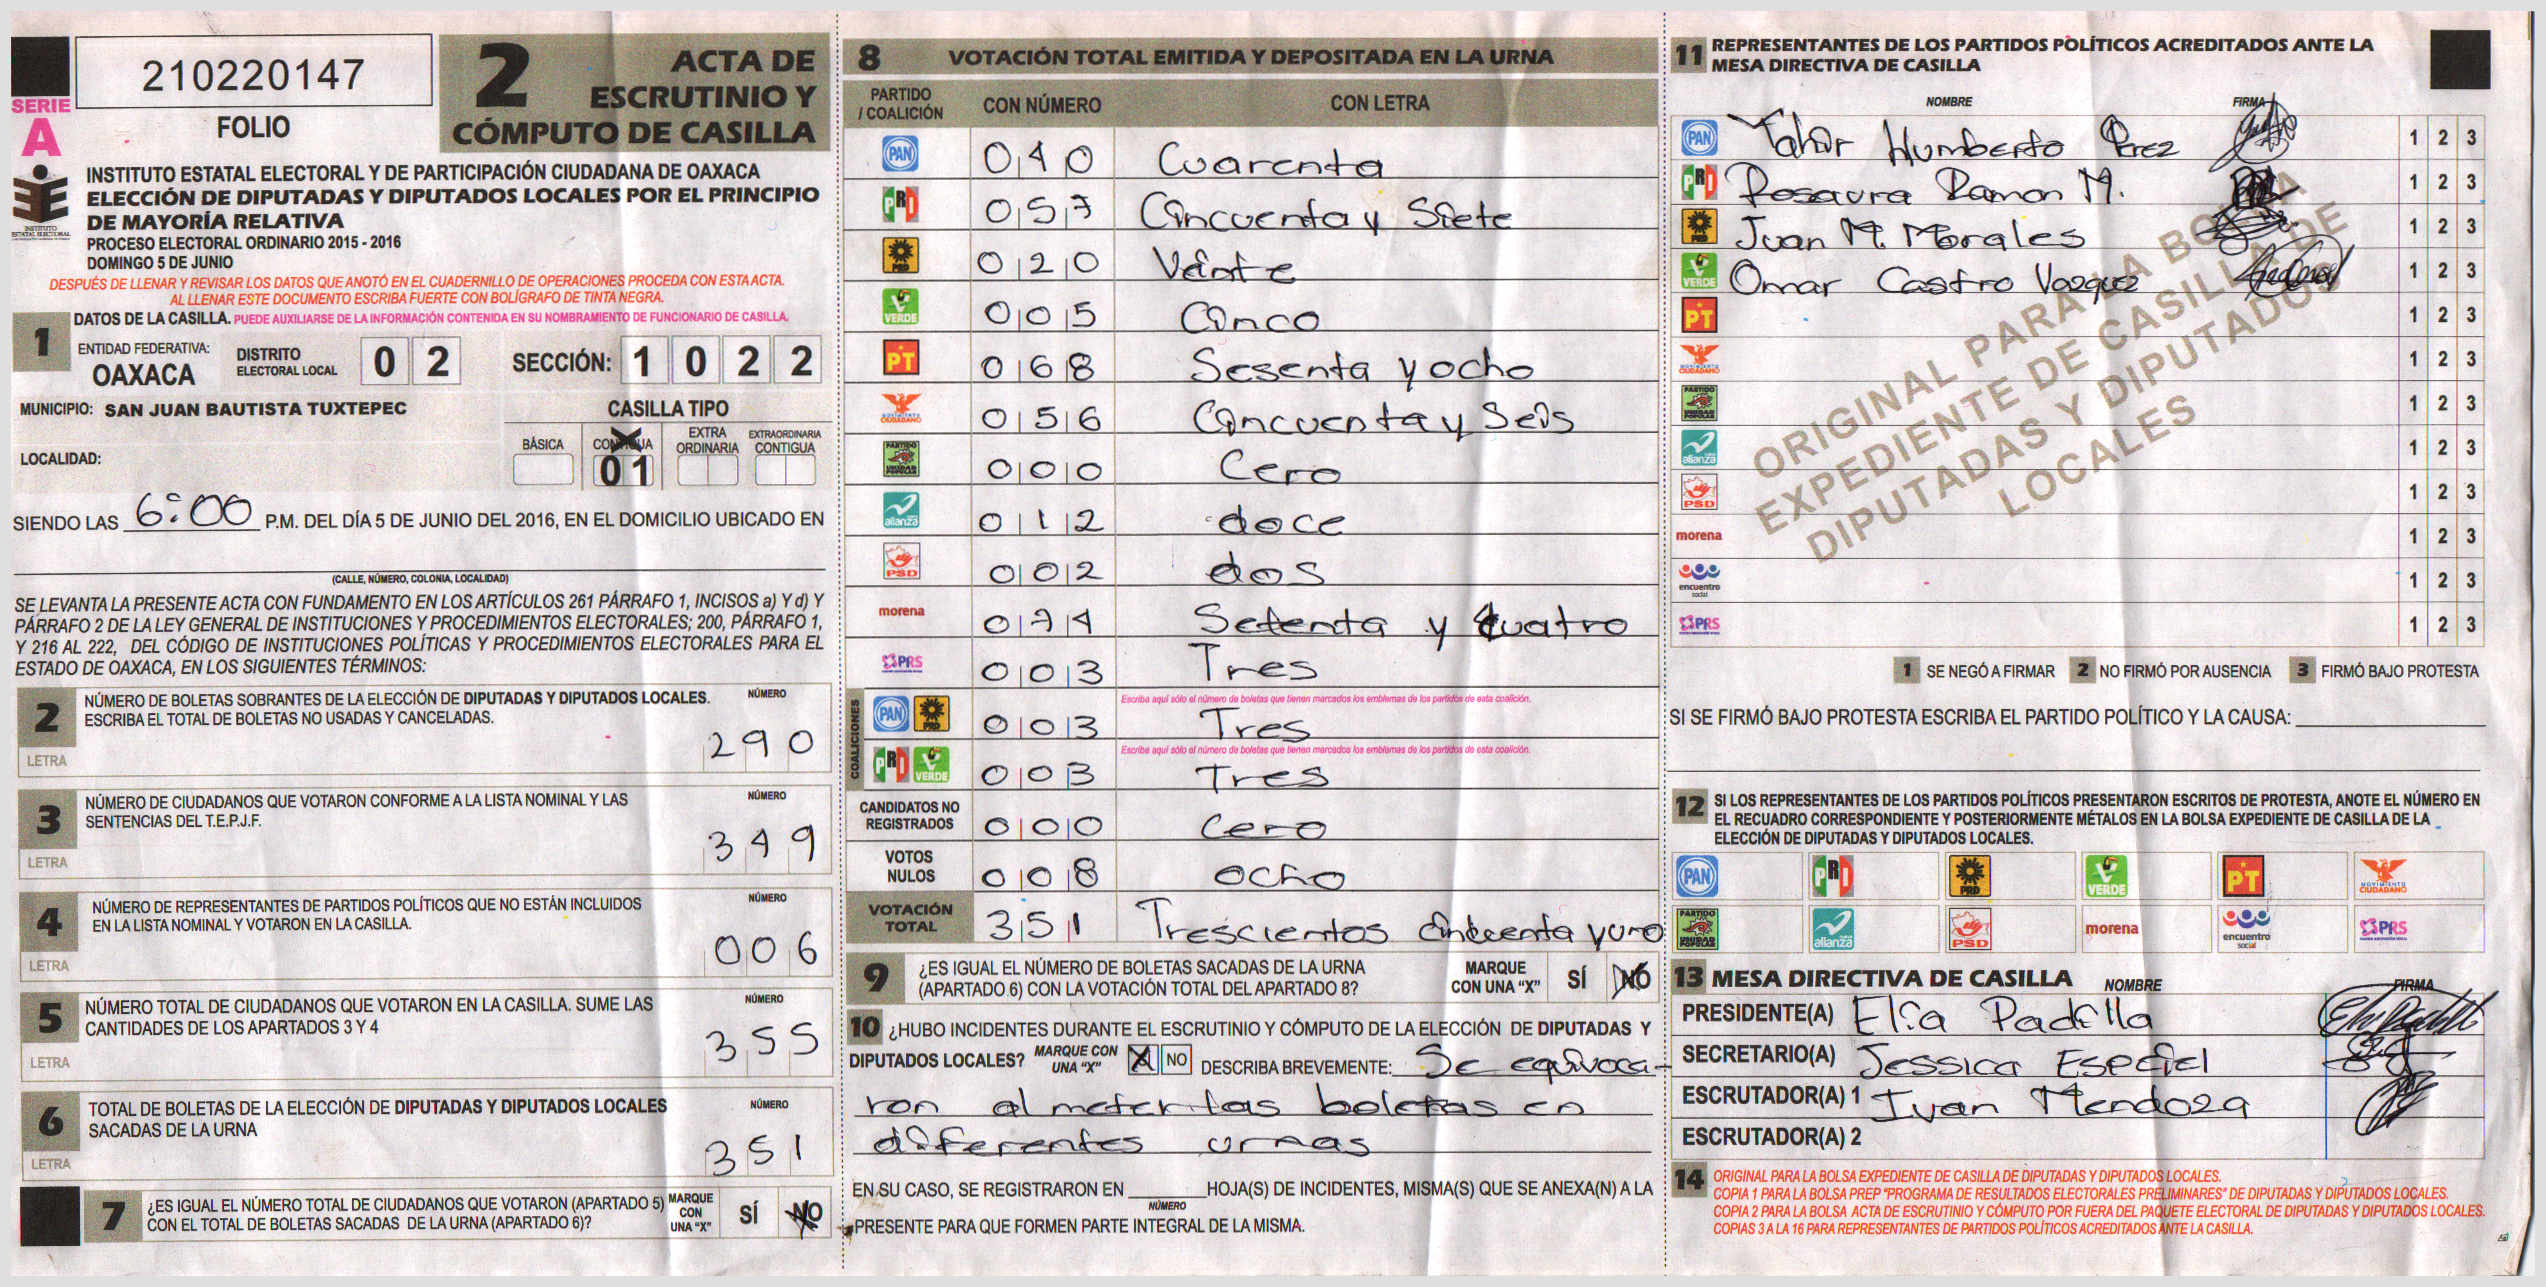 210220147
FOLIO
SERIE
A
2 ACTA DE
ESCRUTINIO Y
CÓMPUTO DE CASILLA
INSTITUTO ESTATAL ELECTORAL Y DE PARTICIPACIÓN CIUDADANA DE OAXACA
ELECCIÓN DE DIPUTADAS Y DIPUTADOS LOCALES POR EL PRINCIPIO
DE MAYORÍA RELATIVA
PROCESO ELECTORAL ORDINARIO 2015 - 2016
DOMINGO 5 DE JUNIO
DESPUÉS DE LLENAR Y REVISAR LOS DATOS QUE ANOTÓ EN EL CUADERNILLO DE OPERACIONES PROCEDA CON ESTA ACTA.
AL LLENAR ESTE DOCUMENTO ESCRIBA FUERTE CON BOLÍGRAFO DE TINTA NEGRA.
1 DATOS DE LA CASILLA. PUEDE AUXILIARSE DE LA INFORMACIÓN CONTENIDA EN SU NOMBRAMIENTO DE FUNCIONARIO DE CASILLA.
ENTIDAD FEDERATIVA: OAXACA
DISTRITO ELECTORAL LOCAL 0 2
SECCIÓN: 1 0 2 2
MUNICIPIO: SAN JUAN BAUTISTA TUXTEPEC
CASILLA TIPO
BÁSICA CONTIGUA EXTRA ORDINARIA EXTRAORDINARIA CONTIGUA
LOCALIDAD:
0 1
SIENDO LAS 6:00 P.M. DEL DÍA 5 DE JUNIO DEL 2016, EN EL DOMICILIO UBICADO EN
(CALLE, NÚMERO, COLONIA, LOCALIDAD)
SE LEVANTA LA PRESENTE ACTA CON FUNDAMENTO EN LOS ARTÍCULOS 261 PÁRRAFO 1, INCISOS a) Y d) Y
PÁRRAFO 2 DE LA LEY GENERAL DE INSTITUCIONES Y PROCEDIMIENTOS ELECTORALES; 200, PÁRRAFO 1,
Y 216 AL 222, DEL CÓDIGO DE INSTITUCIONES POLÍTICAS Y PROCEDIMIENTOS ELECTORALES PARA EL
ESTADO DE OAXACA, EN LOS SIGUIENTES TÉRMINOS:
2 NÚMERO DE BOLETAS SOBRANTES DE LA ELECCIÓN DE DIPUTADAS Y DIPUTADOS LOCALES. NÚMERO
ESCRIBA EL TOTAL DE BOLETAS NO USADAS Y CANCELADAS.
LETRA 290
3 NÚMERO DE CIUDADANOS QUE VOTARON CONFORME A LA LISTA NOMINAL Y LAS NÚMERO
SENTENCIAS DEL T.E.P.J.F.
LETRA 349
4 NÚMERO DE REPRESENTANTES DE PARTIDOS POLÍTICOS QUE NO ESTÁN INCLUIDOS NÚMERO
EN LA LISTA NOMINAL Y VOTARON EN LA CASILLA.
LETRA 006
5 NÚMERO TOTAL DE CIUDADANOS QUE VOTARON EN LA CASILLA. SUME LAS NÚMERO
CANTIDADES DE LOS APARTADOS 3 Y 4
LETRA 355
6 TOTAL DE BOLETAS DE LA ELECCIÓN DE DIPUTADAS Y DIPUTADOS LOCALES NÚMERO
SACADAS DE LA URNA
LETRA 351
7 ¿ES IGUAL EL NÚMERO TOTAL DE CIUDADANOS QUE VOTARON (APARTADO 5)
CON EL TOTAL DE BOLETAS SACADAS DE LA URNA (APARTADO 6)?
MARQUE CON UNA "X" SÍ NO
8 VOTACIÓN TOTAL EMITIDA Y DEPOSITADA EN LA URNA
PARTIDO / COALICIÓN CON NÚMERO CON LETRA
PAN 040 Cuarenta
PRI 057 Cincuenta y Siete
PRD 020 Veinte
VERDE 005 Cinco
PT 068 Sesenta y ocho
MOVIMIENTO CIUDADANO 056 Cincuenta y Seis
PARTIDO UNIDAD POPULAR 000 Cero
alianza 012 doce
PSD 002 dos
morena 074 Setenta y Cuatro
PRS 003 Tres
COALICIONES
Escriba aquí sólo el número de boletas que tienen marcados los emblemas de los partidos de esta coalición.
PAN PRD 003 Tres
Escriba aquí sólo el número de boletas que tienen marcados los emblemas de los partidos de esta coalición.
PRI VERDE 003 Tres
CANDIDATOS NO REGISTRADOS 000 Cero
VOTOS NULOS 008 ocho
VOTACIÓN TOTAL 351 Trescientos Cincuenta y uno
9 ¿ES IGUAL EL NÚMERO DE BOLETAS SACADAS DE LA URNA
(APARTADO 6) CON LA VOTACIÓN TOTAL DEL APARTADO 8?
MARQUE CON UNA "X" SÍ NO
10 ¿HUBO INCIDENTES DURANTE EL ESCRUTINIO Y CÓMPUTO DE LA ELECCIÓN DE DIPUTADAS Y
DIPUTADOS LOCALES? MARQUE CON UNA "X" NO DESCRIBA BREVEMENTE: Se equivoca-
ron al meter las boletas en
diferentes urnas
EN SU CASO, SE REGISTRARON EN HOJA(S) DE INCIDENTES, MISMA(S) QUE SE ANEXA(N) A LA
NÚMERO
PRESENTE PARA QUE FORMEN PARTE INTEGRAL DE LA MISMA.
11 REPRESENTANTES DE LOS PARTIDOS POLÍTICOS ACREDITADOS ANTE LA
MESA DIRECTIVA DE CASILLA
NOMBRE FIRMA
PAN Humberto Perez 1 2 3
PRI Rosaura Ramon M. 1 2 3
PRD Juan M. Morales 1 2 3
VERDE Omar Castro Vazquez 1 2 3
PT 1 2 3
MOVIMIENTO CIUDADANO 1 2 3
PARTIDO UNIDAD POPULAR 1 2 3
alianza 1 2 3
PSD 1 2 3
morena 1 2 3
encuentro social 1 2 3
PRS 1 2 3
ORIGINAL PARA LA BOLSA
EXPEDIENTE DE CASILLA DE
DIPUTADAS Y DIPUTADOS
LOCALES
1 SE NEGÓ A FIRMAR 2 NO FIRMÓ POR AUSENCIA 3 FIRMÓ BAJO PROTESTA
SI SE FIRMÓ BAJO PROTESTA ESCRIBA EL PARTIDO POLÍTICO Y LA CAUSA:
12 SI LOS REPRESENTANTES DE LOS PARTIDOS POLÍTICOS PRESENTARON ESCRITOS DE PROTESTA, ANOTE EL NÚMERO EN
EL RECUADRO CORRESPONDIENTE Y POSTERIORMENTE MÉTALOS EN LA BOLSA EXPEDIENTE DE CASILLA DE LA
ELECCIÓN DE DIPUTADAS Y DIPUTADOS LOCALES.
PAN PRI PRD VERDE PT MOVIMIENTO CIUDADANO
PARTIDO UNIDAD POPULAR alianza PSD morena encuentro social PRS
13 MESA DIRECTIVA DE CASILLA NOMBRE FIRMA
PRESIDENTE(A) Elia Padilla
SECRETARIO(A) Jessica
ESCRUTADOR(A) 1 Ivan Mendoza
ESCRUTADOR(A) 2
14 ORIGINAL PARA LA BOLSA EXPEDIENTE DE CASILLA DE DIPUTADAS Y DIPUTADOS LOCALES.
COPIA 1 PARA LA BOLSA PREP "PROGRAMA DE RESULTADOS ELECTORALES PRELIMINARES" DE DIPUTADAS Y DIPUTADOS LOCALES.
COPIA 2 PARA LA BOLSA ACTA DE ESCRUTINIO Y CÓMPUTO POR FUERA DEL PAQUETE ELECTORAL DE DIPUTADAS Y DIPUTADOS LOCALES.
COPIAS 3 A LA 16 PARA REPRESENTANTES DE PARTIDOS POLÍTICOS ACREDITADOS ANTE LA CASILLA.